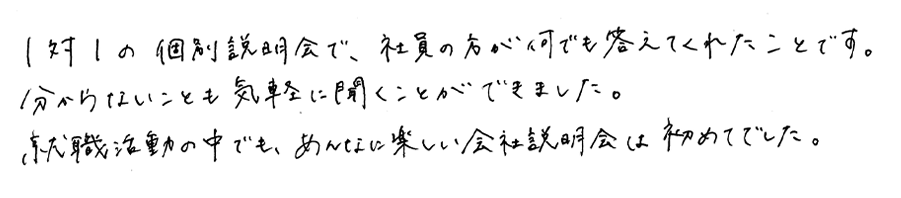 1対1の個別説明会で、社員の方が何でも答えてくれたことです。
分からないことも気軽に聞くことができました。
就職活動の中でも、あんなに楽しい会社説明会は初めてでした。